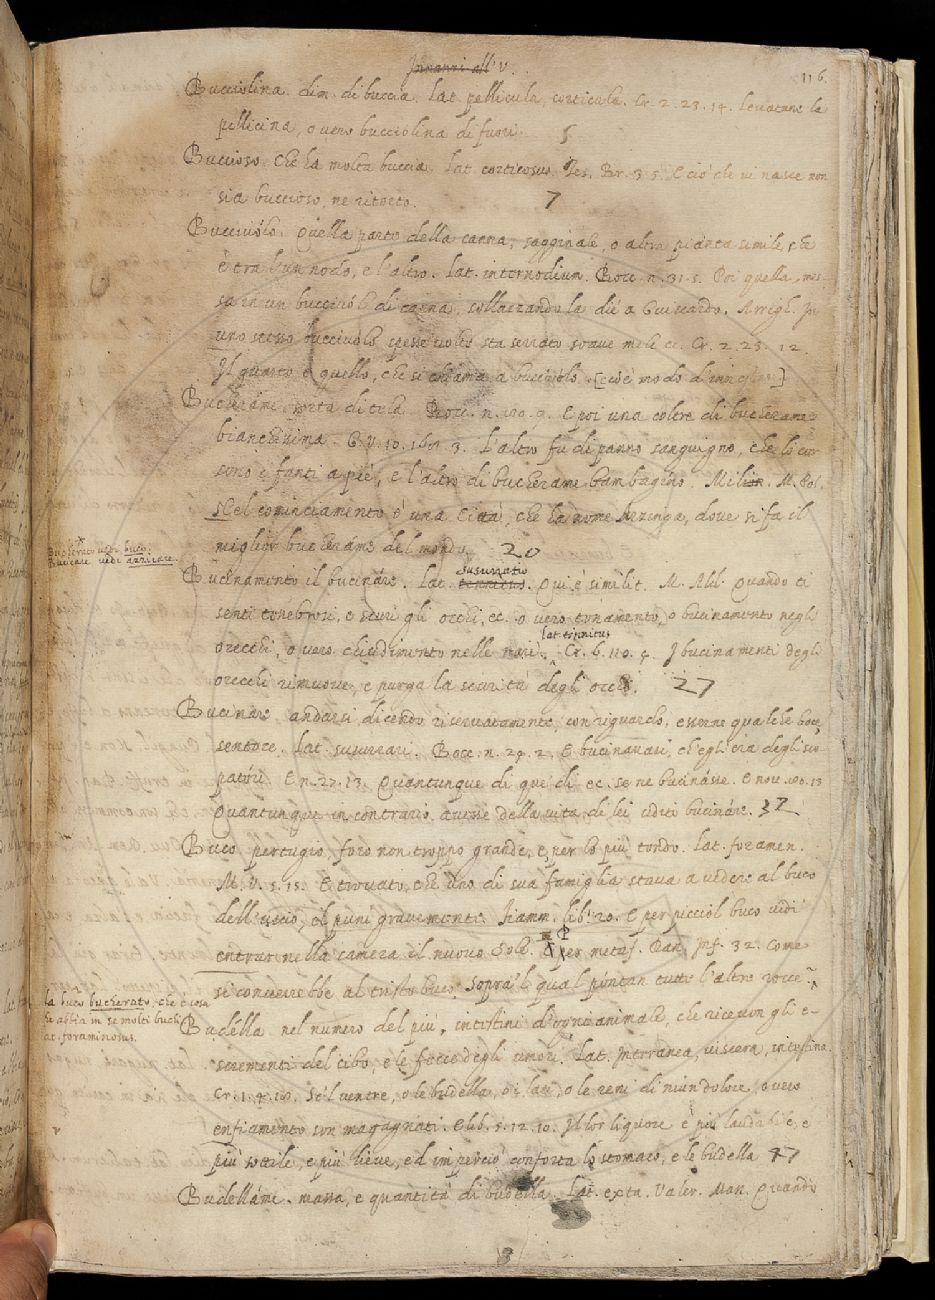 Innanzi all' V.
116
Bucciolina. dim. di buccia. Lat. pellicula, corticula. Cr. 2. 23. 14. Levatane la
pellicina, o vero bucciolina di fuori. 5
Buccioso. Che ha molta buccia. Lat. corticosus. Tes. Br. 3. 5. E ciò che ui nasce non
sia buccioso, ne ritorto. 7
Bucciuólo. Quella parte della canna, sagginale, o altra pianta simile, che
è tra l'un nodo, e l'altro. Lat. internodium. Bocc. n. 31. 5. Poi quella mes-
sa in un bucciuól di canna, sollazzando la diè a Guiscardo. Arrigh. In
uno stesso bucciuolo spesse volte sta serrato soave mele ec. Cr. 2. 23. 12.
Il quarto è quello, che si chiama a bucciuolo. [cioè modo d'innestar]
Bucheráme. sorta di tela. Bocc. n. 100. 9. E poi una coltre di bucherame
bianchissima. G. V. 10. 3. L'altro fu di panno sanguigno, che lo cor
sono i fanti a piè, e l'altro di bucherame bambagino. Milion. M. Pol.
Nel cominciamento è una Città, che ha nome Arzinga, dove si fa il
miglior bucherame del mondo. 20
Bucherare vedi buco.
Bucicare vedi azzicare.
Bucinamento il bucináre. Lat. tinnitus. susurratio Qui è similit. M. Ald. Quando ti
senti tenebrori, e scuri gli occhi, ec. o vero tonamento, o bucinamento negli
orecchi, o vero chiudimento nelle nari. lat. tinnitus Cr. 6. 110. I bucinamenti degli
orecchi rimuove, e purga la scurità degli occhi. 27
Bucináre andarsi dicendo riservatamente, con riguardo, e senne qualche boce,
sentore. Lat. susurrari. Bocc. n. 29. 2. E bucinavasi, ch'egli era degli sco
patóri. E n. 27. 13. Quantunque di que' dì ec. se ne bucinásse. E nov. 100. 13
Quantunque in contrario avesse della vita di lei udito bucináre. 32
Buco pertugio foro non troppo grande, e per lo più tondo. Lat. foramen.
M. V. 5. 15. E trovato, che uno di sua famiglia stava a vedere al buco
dell'uscio, il punì gravemente. Fiamm. lib. 20. E per picciol buco vidi
entrar nella camera il nuovo Sole. per metaf. Dan. Inf. 32. Come
si converrebbe al tristo buco, Sopra 'l qual póntan tutte l'altre rocce.
La buco bucherato, che è cosa
che abbia in se molti buchi
lat. foraminosus.
Budélla nel numero del più, intestini d'ogni animale, che ricevon gli e-
scrementi del cibo, e le fecce degli umori. Lat. Interranea, viscera, intestina.
Cr. 1. 4. 10. Se 'l ventre, o le budella, o i lati, o le reni di niun dolore, o vero
enfiamento son magagnati. E lib. 5. 12. 10. Il lor liquore è più laudabile, e
più sottile, e più lieve, ed imperciò conforta lo stomaco, e le budella 47
Budelláme. massa, e quantità di budella. Lat. exta. Valer. Mass. Quando